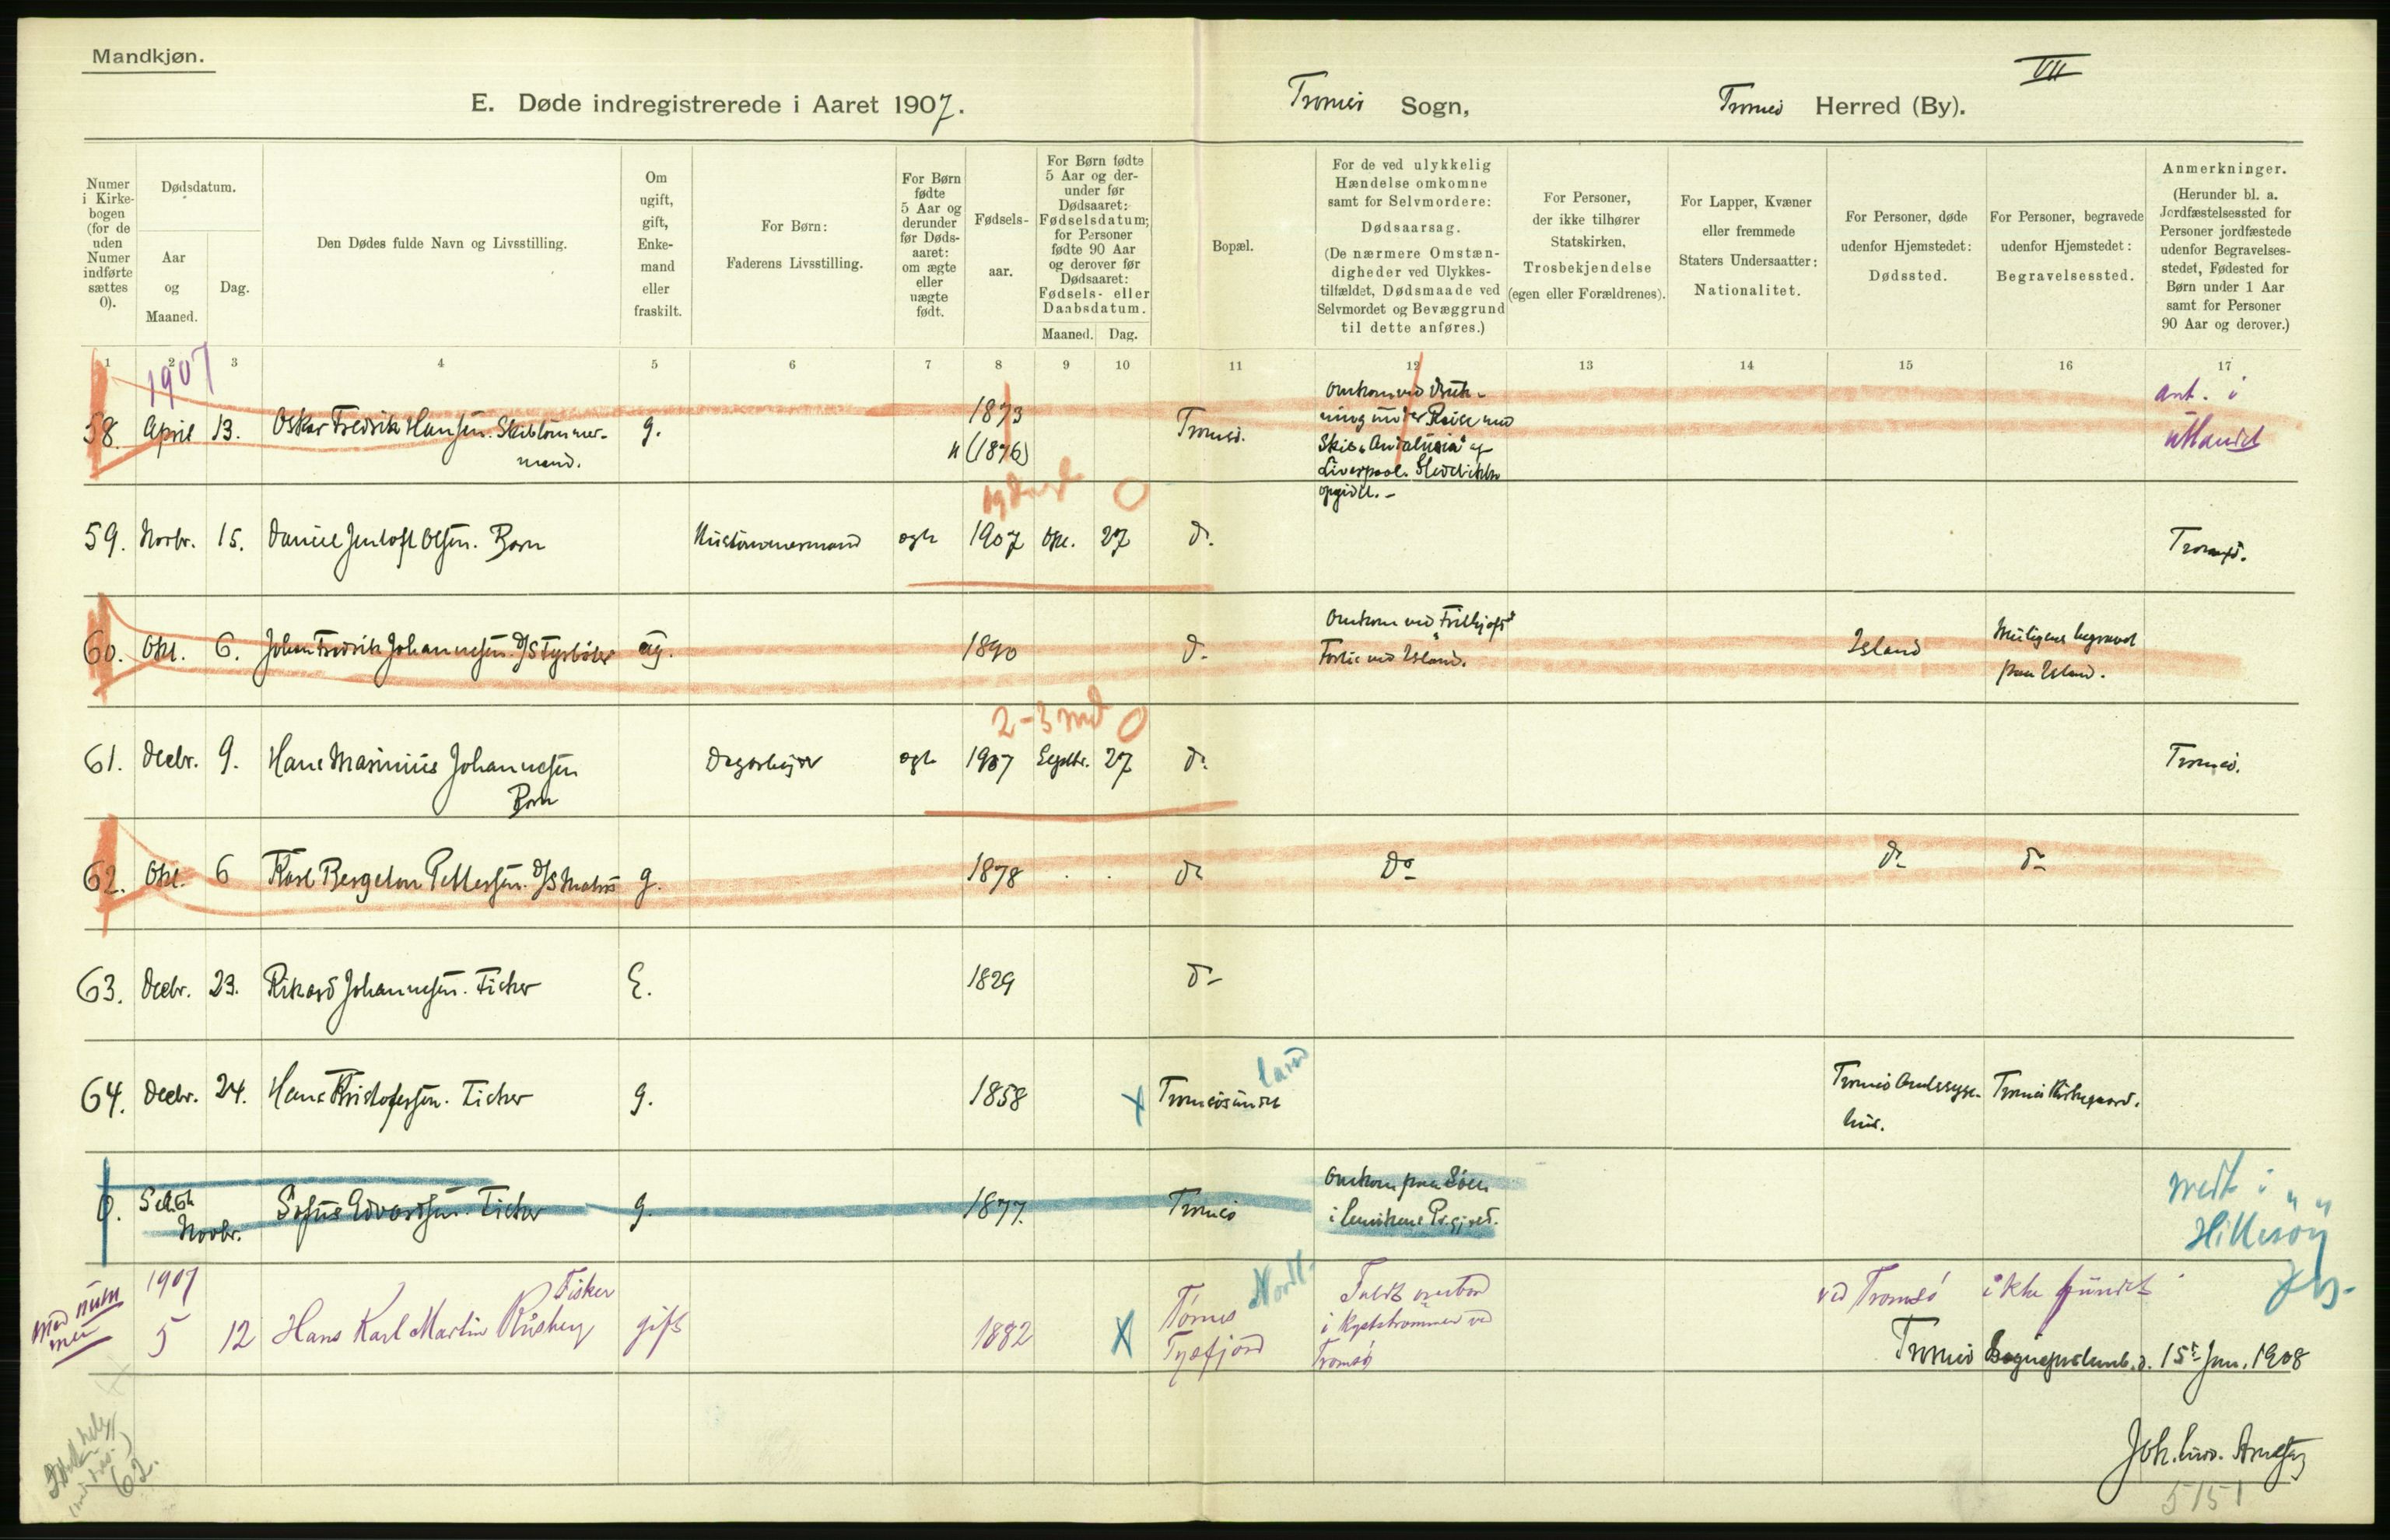 Mandkjøn.
VII
E. Døde indregistrerede i Aaret 1907.
Tromsø Sogn,
Tromsø Herred (By).
Numer i Kirkebogen (for de uden Numer indførte sættes 0).
Dødsdatum.
Aar og Maaned.
Dag.
Den Dødes fulde Navn og Livsstilling.
Om ugift, gift, Enkemand eller fraskilt.
For Børn:
Faderens Livsstilling.
For Børn fødte 5 Aar og derunder før Dødsaaret: om ægte eller uægte født.
Fødselsaar.
For Børn fødte 5 Aar og derunder før Dødsaaret: Fødselsdatum; for Personer fødte 90 Aar og derover før Dødsaaret: Fødsels- eller Daabsdatum.
Maaned.
Dag.
Bopæl.
For de ved ulykkelig Hændelse omkomne samt for Selvmordere:
Dødsaarsag.
(De nærmere Omstændigheder ved Ulykkestilfældet, Dødsmaade ved Selvmordet og Bevæggrund til dette anføres.)
For Personer, der ikke tilhører Statskirken,
Trosbekjendelse
(egen eller Forældrenes).
For Lapper, Kvæner eller fremmede Staters Undersaatter:
Nationalitet.
For Personer, døde udenfor Hjemstedet:
Dødssted.
For Personer, begravede udenfor Hjemstedet:
Begravelsessted.
Anmerkninger.
(Herunder bl. a. Jordfæstelsessted for Personer jordfæstede udenfor Begravelsesstedet, Fødested for Børn under 1 Aar samt for Personer 90 Aar og derover.)
1 2 3 4 5 6 7 8 9 10 11 12 13 14 15 16 17
1907
58. April 13. Oskar Fredrik Hansen. Skibtømmermand. g. 1873 (1876) Tromsø. Omkom ved Drukning under Reise med Skib "Andalusia" af Liverpool. opgivet. - ant. i utlandet
59. Novbr. 15. Daniel Jentoft Olsen. Barn Hustømmermand ægte 1907 Okt. 27 do. Tromsø.
0
60. Okt. 6. Johan Fredrik Johannesen. D/S Fyrbøter ug. 1890 do. Omkom ved "Fridtjofs" Forlis ved Island. Island Muligens begravet paa Island.
2-3 md 0
61. Decbr. 9. Hans Marinius Johannesen Barn Dagarbejder ægte 1907 Septbr. 27 do. Tromsø.
62. Okt. 6 Karl Bergeton Pettersen. D/S Matros g. 1878 do do do do
63. Decbr. 23. Rikard Johannesen. Fisker E. 1829 do
64. Decbr. 24. Hans Kristofersen. Fisker g. 1858 X Tromsøsundet Tromsø Amtssygehus. Tromsø Kirkegaard.
0. Novbr. Sofus Edvardsen. Fisker g. 1877. Tromsø Omkom paa Søen i Lenvikens Prgjeld. medt i
Hillesøy
1907
5 12 Hans Karl Martin Fisker gift 1882 X Tysfjord Nordl. Faldt overbord i Kyststrømmen ved Tromsø ved Tromsø ikke fundet
Tromsø Sogneprestemb. d. 15de Jan. 1908
62.
5151